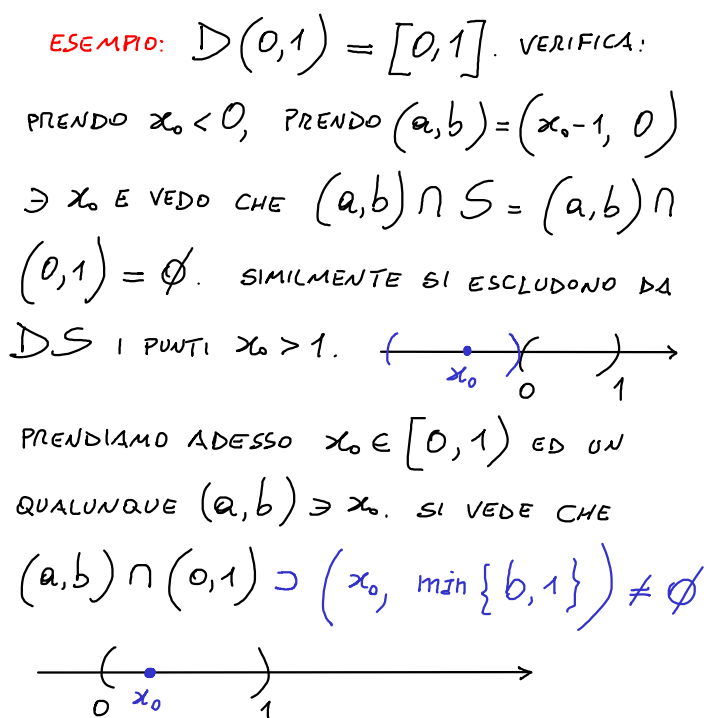 ESEMPIO: D(0,1) = [0,1]. VERIFICA:
PRENDO x₀ < 0, PRENDO (a,b) = (x₀-1, 0)
∋ x₀ E VEDO CHE (a,b) ∩ S = (a,b) ∩
(0,1) = ∅. SIMILMENTE SI ESCLUDONO DA
DS I PUNTI x₀ > 1.
x₀ 0 1
PRENDIAMO ADESSO x₀ ∈ [0,1) ED UN
QUALUNQUE (a,b) ∋ x₀. SI VEDE CHE
(a,b) ∩ (0,1) ⊃ (x₀, min{b,1}) ≠ ∅
0 x₀ 1